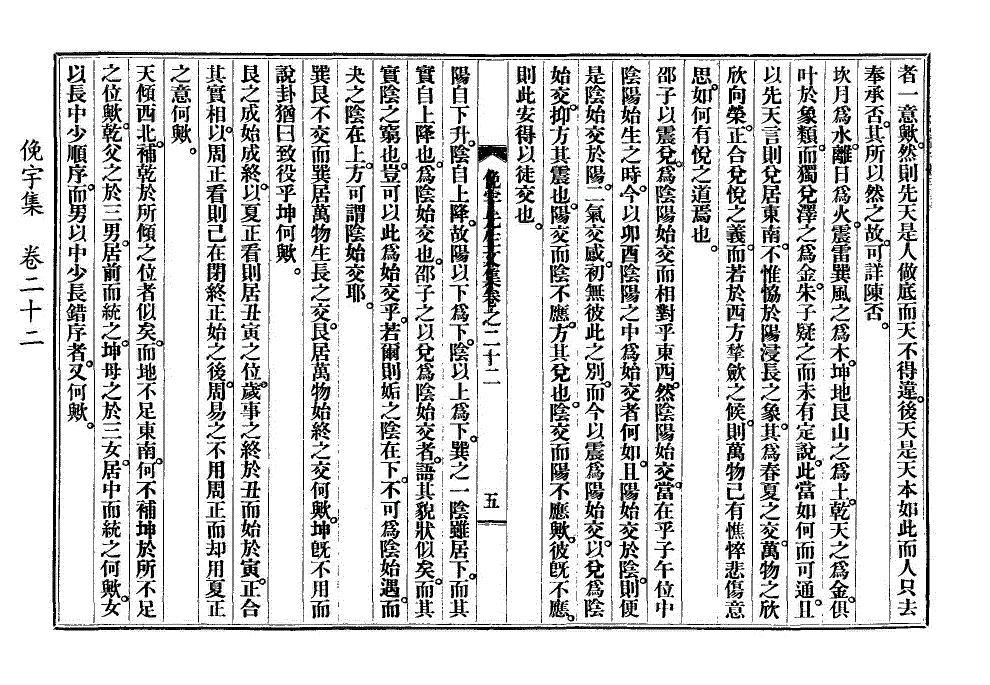 者一意歟。然則先天是人做底而天不得違。後天是天本如此而人只去
奉承否。其所以然之故。可詳陳否。
坎月爲水。離日爲火。震雷巽風之爲木。坤地艮山之爲土。乾天之爲金。俱
叶於象類。而獨兌澤之爲金。朱子疑之而未有定說。此當如何而可通。且
以先天言則兌居東南。不惟恊於陽浸長之象。其爲春夏之交。萬物之欣
欣向榮。正合兌悅之義。而若於西方揫歛之候。則萬物已有憔悴悲傷意
思。如何有悅之道焉也。
邵子以震兌。爲陰陽始交而相對乎東西。然陰陽始交。當在乎子午位中
陰陽始生之時。今以卯酉陰陽之中爲始交者何如。且陽始交於陰。則便
是陰始交於陽。二氣交感。初無彼此之別。而今以震爲陽始交。以兌爲陰
始交。抑方其震也。陽交而陰不應。方其兌也。陰交而陽不應歟。彼旣不應。
則此安得以徒交也。
俛宇先生文集卷之二十二
五
陽自下升。陰自上降。故陽以下爲下。陰以上爲下。巽之一陰雖居下。而其
實自上降也。爲陰始交也。邵子之以兌爲陰始交者。語其貌狀似矣。而其
實陰之窮也。豈可以此爲始交乎。若爾則姤之陰在下。不可爲陰始遇。而
夬之陰在上。方可謂陰始交耶。
巽艮不交而巽居萬物生長之交。艮居萬物始終之交何歟。坤旣不用而
說卦猶曰致役乎坤何歟。
艮之成始成終。以夏正看則居丑寅之位。歲事之終於丑而始於寅。正合
其實相。以周正看則已在閉終正始之後。周易之不用周正而却用夏正
之意何歟。
天傾西北。補乾於所傾之位者似矣。而地不足東南。何不補坤於所不足
之位歟。乾父之於三男。居前而統之。坤母之於三女。居中而統之何歟。女
以長中少順序。而男以中少長錯序者。又何歟。
俛宇集 卷二十二